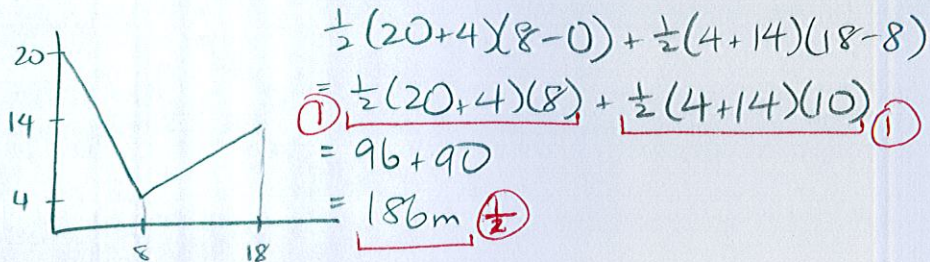 20
14
4
8 18
½(20+4)(8-0) + ½(4+14)(18-8)
= ½(20+4)(8) + ½(4+14)(10)
① ①
= 96 + 90
= 186m ½